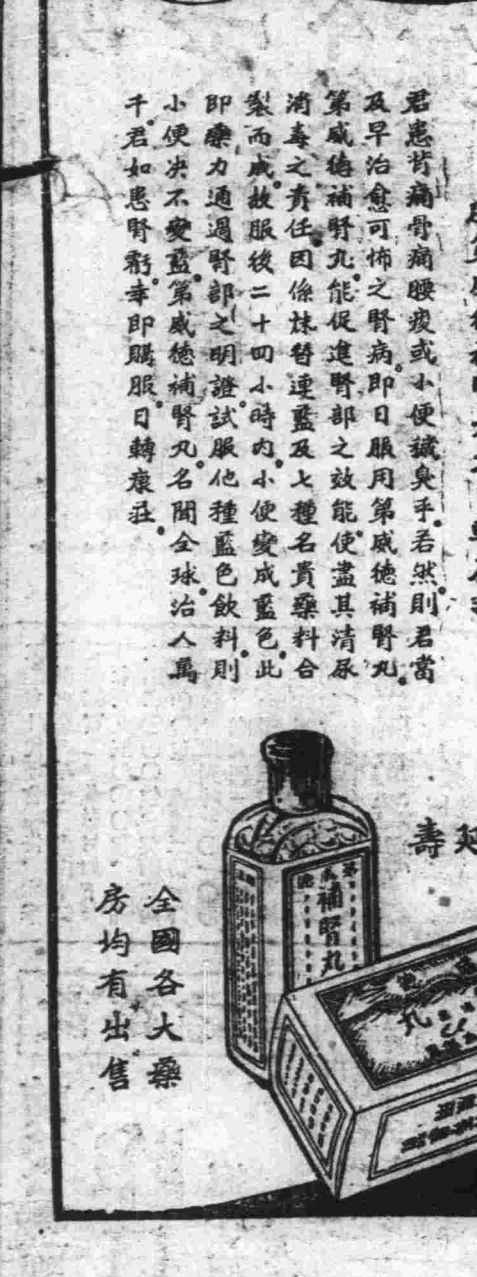 君患背痛骨痛腰痠或小便穢臭乎。若然。則君當
及早治愈可怖之腎病。即日服用第威德補腎丸。
第威德補腎丸。能促進腎部之效能。使盡其清尿
消毒之責任。因係妹替連藍及七種名貴藥料合
製而成。故服後二十四小時內。小便變成藍色。此
即藥力通過腎部之明證。試服他種藍色飲料。則
小便决不變藍。第威德補腎丸。名聞全球。治人萬
千。君如患腎虧。幸即購服。日轉康莊。
壽
補腎丸
丸
全國各大藥
房均有出售